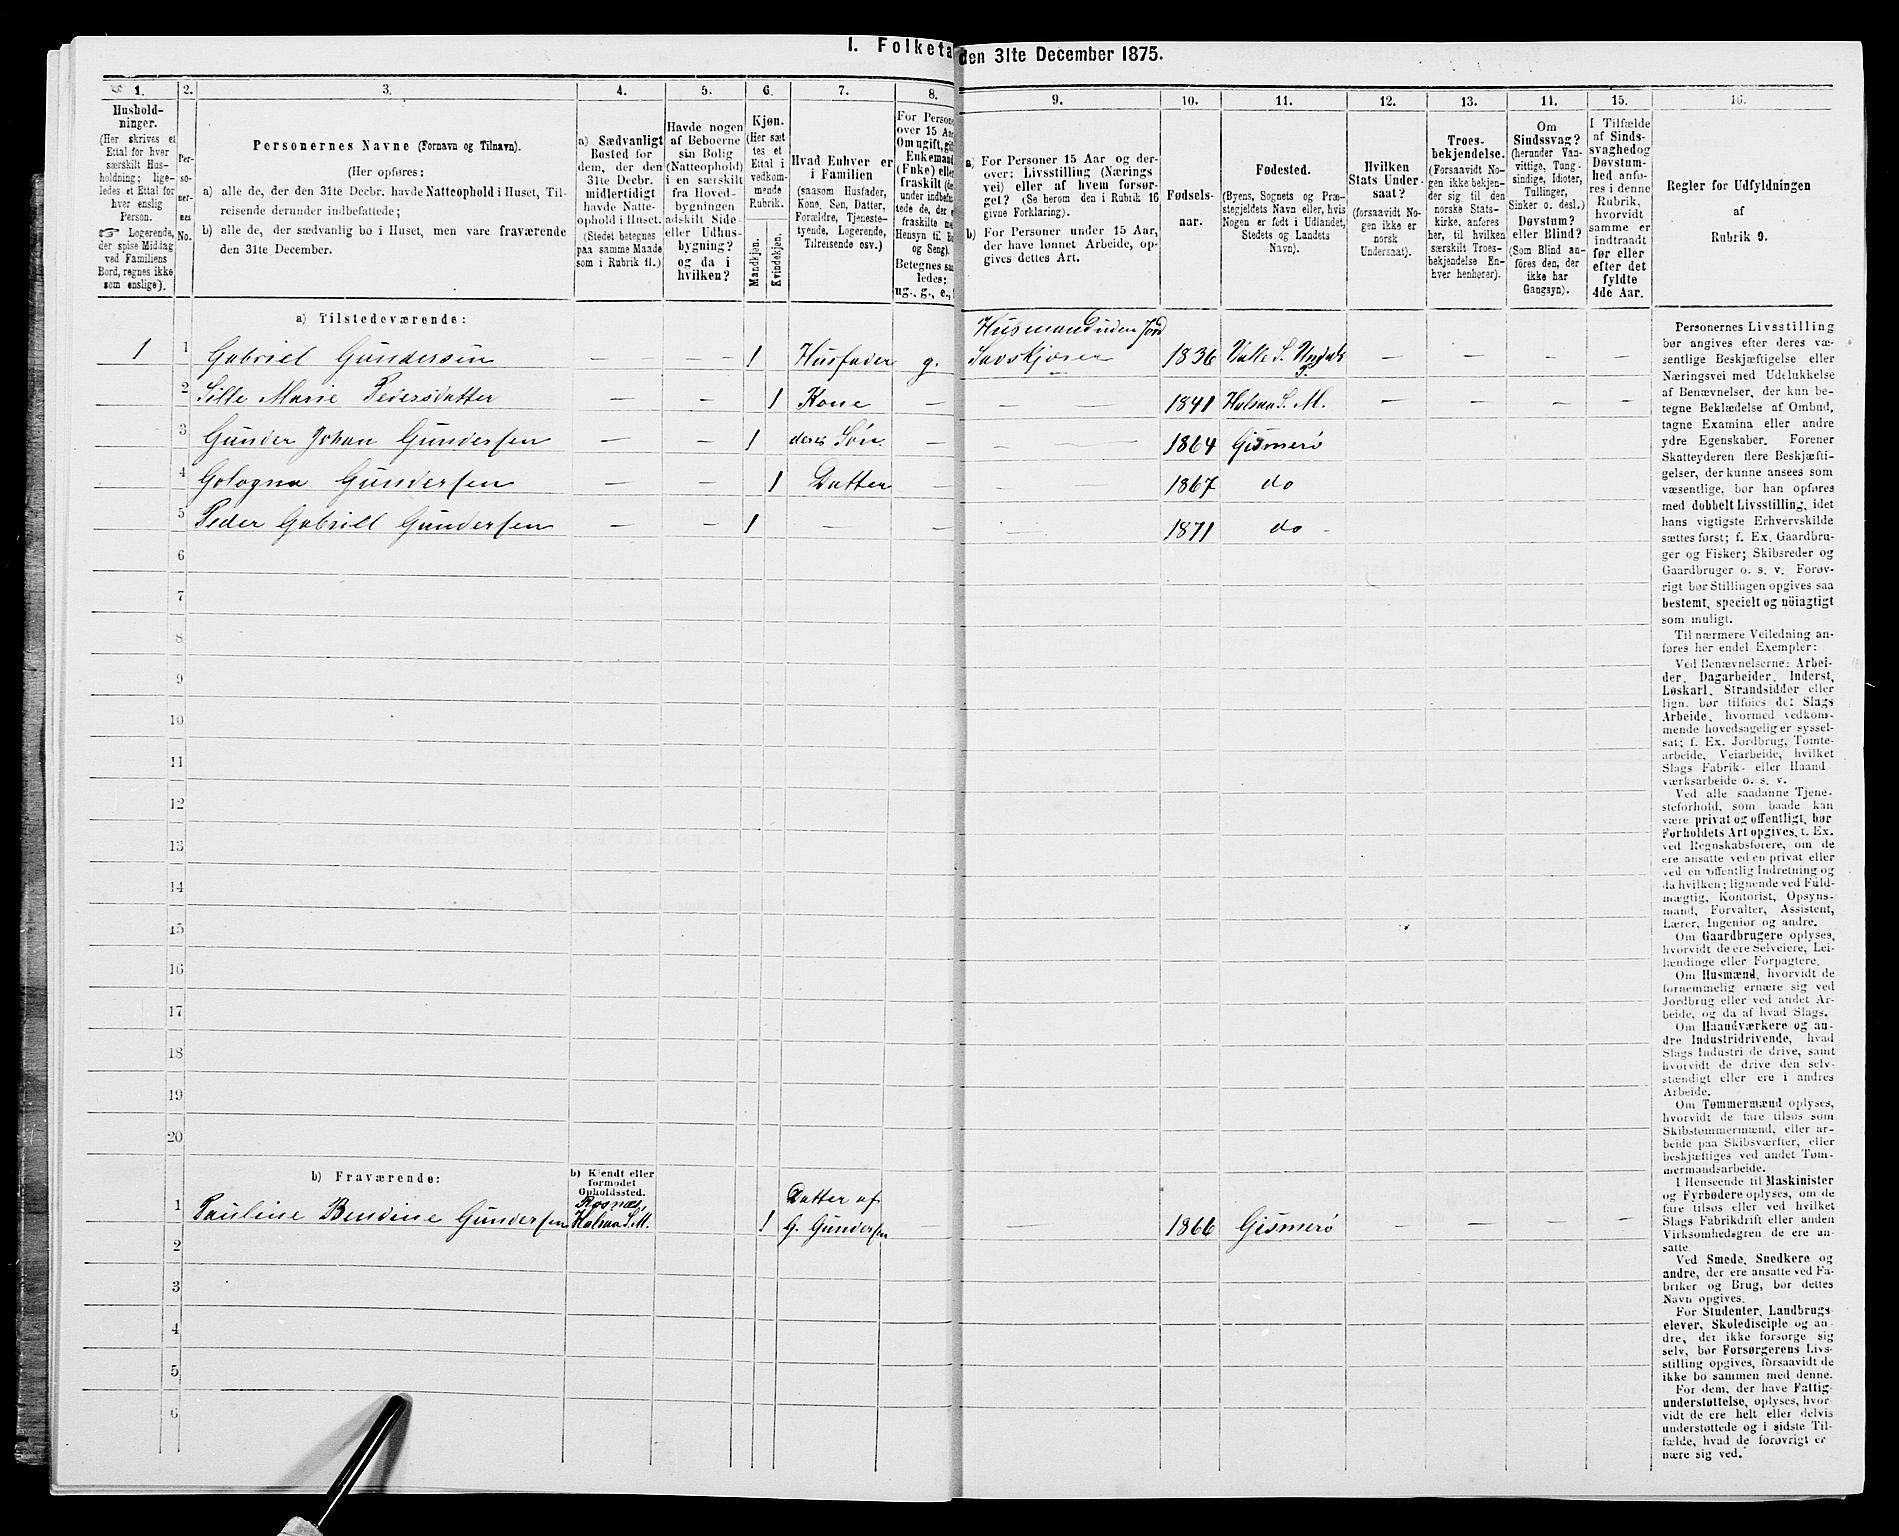 I. Folketa den 31te December 1875.
1. 2. 3. 4. 5. 6. 7. 8. 9. 10. 11. 12. 13. 14. 15. 16.
Hushold-
ninger.
(Her skrives et
Ettal for hver
særskilt Hus-
holdning; lige-
ledes et Ettal for
hver enslig
Person.
☞ Logerende,
der spise Middag
ved Familiens
Bord, regnes ikke
som enslige).
Per-
so-
ner-
nes
No.
Personernes Navne (Fornavn og Tilnavn).
(Her opføres:
a) alle de, der den 31te Decbr. havde Natteophold i Huset, Til-
reisende derunder indbefattede;
b) alle de, der sædvanlig bo i Huset, men vare fraværende
den 31te December.
a) Sædvanligt
Bosted for
dem, der den
31te Decbr.
midlertidigt
havde Natte-
ophold i Huset.
(Stedet betegnes
paa samme Maade
som i Rubrik 11.)
Havde nogen
af Beboerne
sin Bolig
(Natteophold)
i en særskilt
fra Hoved-
bygningen
adskilt Side-
eller Udhus-
bygning?
og da i
hvilken?
Kjøn.
(Her sæt
tes et
Ettal i
vedkom-
mende
Rubrik.
Mandkjøn.
Kvindekjøn.
Hvad Enhver er
i Familien
(saasom Husfader,
Kone, Søn, Datter,
Forældre, Tjeneste-
tyende, Logerende,
Tilreisende osv.)
For Persone
over 15 Aar
Om ugift, gif
Enkemand
(Enke) elle
fraskilt (de
under indbefat
tede de, der e
fraskilte me
Hensyn til Bo
og Seng).
Betegnes saa
ledes:
ug., g., e.,
a) For Personer 15 Aar og der-
over: Livsstilling (Nærings
vei) eller af hvem forsør-
get? (Se herom den i Rubrik 16
givne Forklaring).
b) For Personer under 15 Aar,
der have lønnet Arbeide, op-
gives dettes Art.
Fødsels-
aar.
Fødested.
(Byens, Sognets og Præ-
stegjeldets Navn eller, hvis
Nogen er født i Udlandet,
Stedets og Landets
Navn).
Hvilken
Stats Under-
saat?
(forsaavidt No-
gen ikke er
norsk
Undersaat).
Troes-
bekjendelse.
(Forsaavidt No-
gen ikke bekjen-
der sig til den
norske Stats-
kirke, anføres
her, til hvilken
særskilt Troes-
bekjendelse En-
hver henhører).
Om
Sindssvag?
(herunder Van-
vittige, Tung-
sindige, Idioter,
Tullinger,
Sinker o. desl.)
Døvstum?
eller Blind?
(Som Blind an-
føres den, der
ikke har
Gangsyn).
I Tilfælde
af Sinds-
svaghed og
Døvstum-
hed anfø-
res i denne
Rubrik,
hvorvidt
samme er
indtraadt
før eller
efter det
fyldte
4de Aar.
Regler for Udfyldningen
af
Rubrik 9.
a) Tilstedeværende:
Husmand uden Jord
1 1 Gabriel Gundersen — — 1 Husfader g. Savskjærer 1836 Valle S. Undals P. — — — —
2 Sille Marie Pedersdatter — — 1 Kone — — 1841 Halsaa S. M. — — — —
3 Gunder Johan Gundersen — — 1 deres Søn — — 1864 Gismerö
4 Gologna Gundersen — — 1 Datter — — 1867 do
5 Peder Gabriel Gundersen — — 1 — — — 1871 do
6
7
8
9
10
11
12
13
14
15
16
17
18
19
20
b) Fraværende:
b) Kjendt eller
formodet
Opholdssted.
Rosnæs Datter af
1 Pauline Bendine Gundersen Halsaa S. M. 1 G. Gundersen — 1866 Gismerö — — — —
2
3
4
5
6
Personernes Livsstilling
bør angives efter deres væ-
sentlige Beskjæftigelse eller
Næringsvei med Udelukkelse
af Benævnelser, der kun be-
tegne Beklædelse af Ombud,
tagne Examina eller andre
ydre Egenskaber. Forener
Skatteyderen flere Beskjæfti-
gelser, der kunne ansees som
væsentlige, bør han opføres
med dobbelt Livsstilling, idet
hans vigtigste Erhvervskilde
sættes først; f. Ex. Gaardbru-
ger og Fisker; Skibsreder og
Gaardbruger o. s. v. Forøv-
rigt bør Stillingen opgives saa
bestemt, specielt og nöiagtigt
som muligt.
Til nærmere Veiledning an-
føres her endel Exempler:
Ved Benævnelserne: Arbei-
der, Dagarbeider, Inderst,
Løskarl, Strandsidder eller
lign. bør tilføies det Slags
Arbeide, hvormed vedkom-
mende hovedsagelig er syssel-
sat; f. Ex. Jordbrug, Tomte-
arbeide, Veiarbeide, hvilket
Slags Fabrik- eller Haand
værksarbeide o. s. v.
Ved alle saadanne Tjene-
steforhold, som baade kan
være privat og offentligt, bør
Forholdets Art opgives, t. Ex.
ved Regnskabsførere, om de
ere ansatte ved en privat eller
ved en offentlig Indretning og
da hvilken; lignende ved Fuld-
mægtig, Kontorist, Opsyns-
mand, Forvalter, Assistent,
Lærer, Ingeniør og andre.
Om Gaardbrugere oplyses,
hvorvidt de ere Selveiere, Lei-
lændinge eller Forpagtere.
Om Husmænd, hvorvidt de
fornemmelig ernære sig ved
Jordbrug eller ved andet Ar-
beide, og da af hvad Slags.
Om Haandværkere og an-
dre Industridrivende, hvad
Slags Industri de drive, samt
hvorvidt de drive den selv-
stændigt eller ere i andres
Arbeide.
Om Tømmermænd oplyses,
hvorvidt de fare tilsøs som
Skibstømmermænd, eller ar-
beide paa Skibsværfter, eller
beskjæftiges ved andet Tøm-
mermandsarbeide.
I Henseende til Maskinister
og Fyrbødere oplyses, om de
fare tilsøs eller ved hvilket
Slags Fabrikdrift eller anden
Virksomhedsgren de ere an-
satte.
Ved Smede, Snedkere og
andre, der ere ansatte ved Fa-
briker og Brug, bør dettes
Navn opgives.
For Studenter, Landbrugs-
elever, Skoledisciple og an-
dre, der ikke forsørge sig
selv, bør Forsørgerens Livs-
stilling opgives, forsaavidt de
ikke bo sammen med denne.
For dem, der have Fattig-
understøttelse, oplyses, hvor-
vidt de ere helt eller delvis
understøttede og i sidste Til-
fælde, hvad de forøvrigt er
nære sig ved.